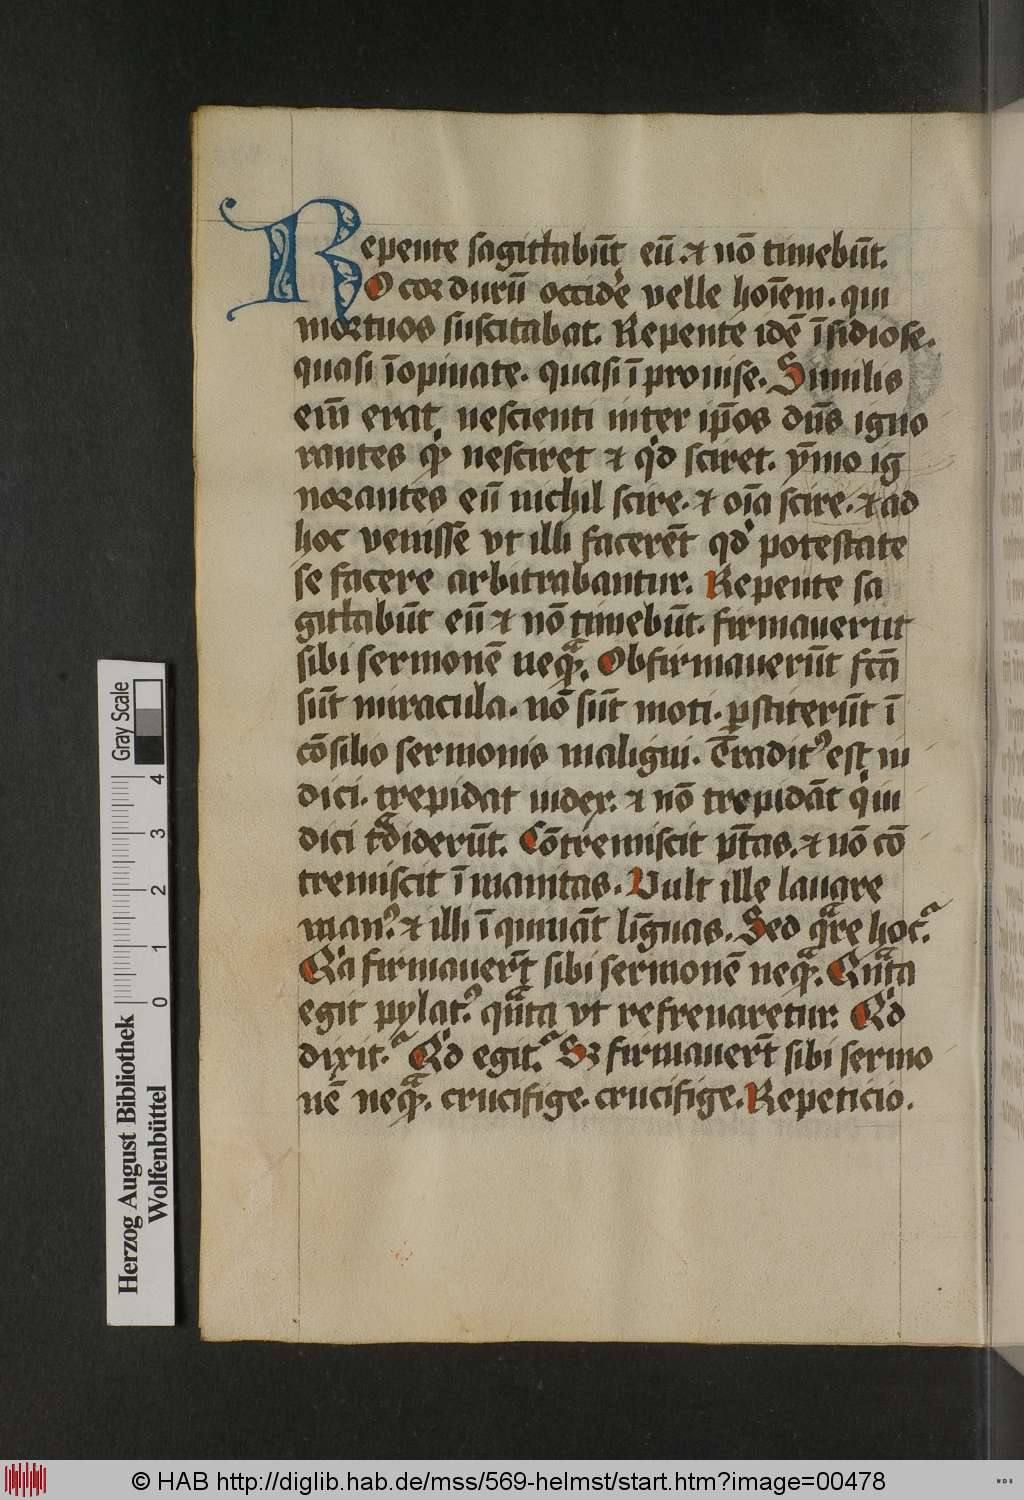 Repente sagittabūt eū ⁊ nō timebūt.
O cor durū occidẽ velle hoīem. qui
mortuos suscitabat. Repente idē īsidiose.
quasi īopinate. quasi ī prouise. Similis
eīn erat nescienti inter ip̄os dūs igno
rantes qͥ nesciret ⁊ qͥd sciret. ẏmo ig
norantes eū nichil scire. ⁊ oīa scire. ⁊ ad
hoc venisse vt illi facerēt qd' potestate
se facere arbitrabantur. Repente sa
gittabūt eū ⁊ nō timebūt. firmauerut
sibi sermonē neqᷓ. Obfirmauerūt fcā
sūt miracula. nō sūt moti. ꝑstiterūt ī
cōsilio sermonis maligni. Traditꝰ est iu
dici. trepidat iudex. ⁊ nō trepidāt qͥ iu
dici tᷓdiderūt. Cōtremiscit p̄tas. ⁊ nō cō
tremiscit īmanitas. Vult ille lauare
manꝰ. ⁊ illi ī quināt līguas. Sed qᷓre hoc?
Qͥa firmauer̄t sibi sermonē neqᷓ. Qᷓnta
egit pylatꝰ. qᷓnta vt refrenaretur. Qͥd
dixit? Qͥd egit? Sꝫ firmauer̄t sibi sermo
nē neqᷓ. crucifige. crucifige. Repeticio.
Gray Scale
4
3
2
1
0
Herzog August Bibliothek
Wolfenbüttel
© HAB http://diglib.hab.de/mss/569-helmst/start.htm?image=00478